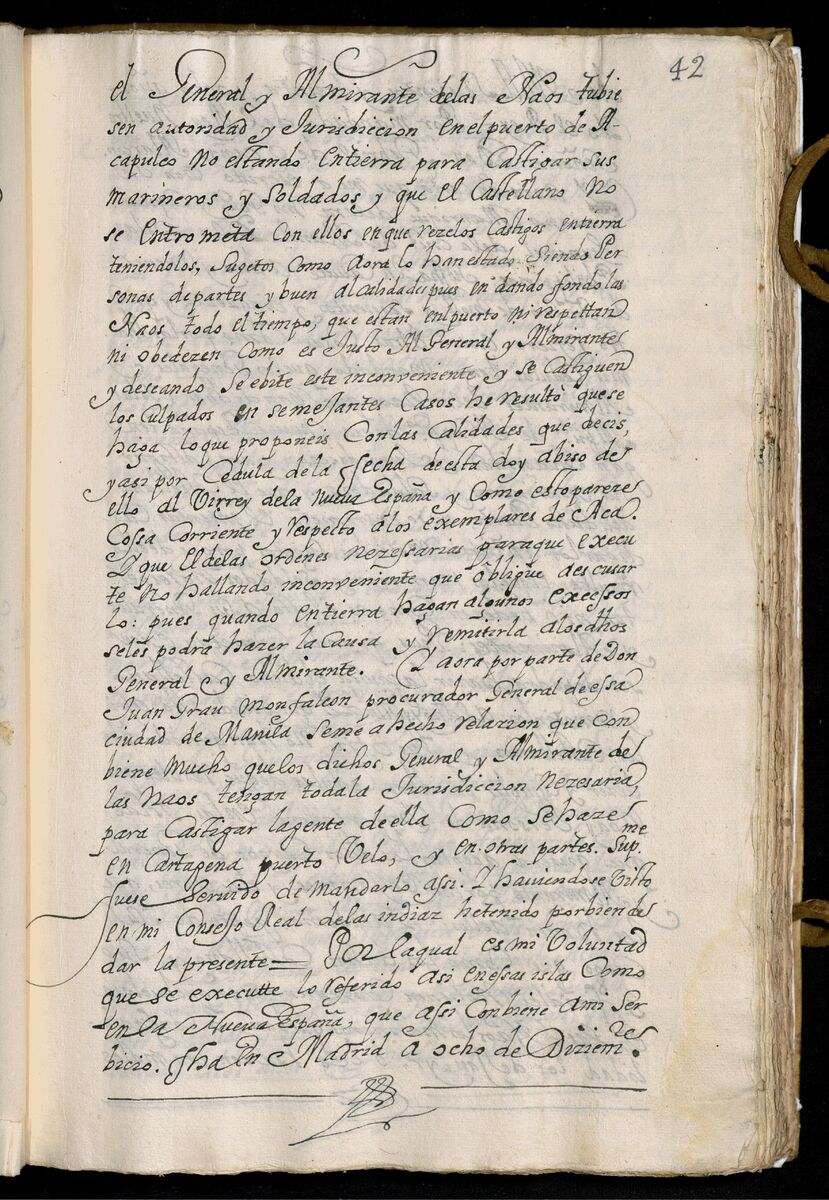 42
el General y Almirante delas Naos tubie
sen autoridad y Jurisdiccion en el puerto de A-
capulco No estando entierra para Castigar sus
marineros y soldados, y que el Castellano No
se entrometa con ellos en que rezelos Castigos entierra
teniendolos, sugetos como aora lo han estado siendo Per
sonas de partes y buen a calidades pues en dando fondo las
Naos todo el tiempo, que estan enl puerto ni respettan
ni obedezen como es Justo Al General y Almirante
y deseando se ebite este inconveniente y se Castiguen
los culpados en semejantes casos he resultò que se
haga lo que proponeis con las calidades que decis,
y asi por Cedula de la fecha de esta doy abiso de
ello al Virrey dela nueva España y como esto pareze
Cossa corriente y respecto â los exemplares de Aca.
Y que el de las ordenes nezessarias para que execu
te No hallando inconveniente que ôbligue a escusar
lo: pues quando en tierra hagan algunos execssos
seles podrà hazer la causa y remitirla alos dhos
General y Almirante. Y aora por parte de Don
Juan Grau monfalcon procurador General de essa
ciudad de Manila se me a hecho relazion que con
biene mucho que los dichos General y Almirante de
las Naos tengan toda la Jurisdiccion nezesaria,
para castigar la gente de ella como se haze
en Cartagena puerto Velo, y en otras partes. Sup.me
fuese servido de mandarlo asi. Y haviendose visto
en mi Consejo Real de las indiaz he tenido por bien de
dar la presente = Por la qual es mi Voluntad
que se executte lo referido asi en essas islas Como
en la Nueva España, que assi conbiene a mi ser
bicio. fha en Madrid a ocho de Diziem.re